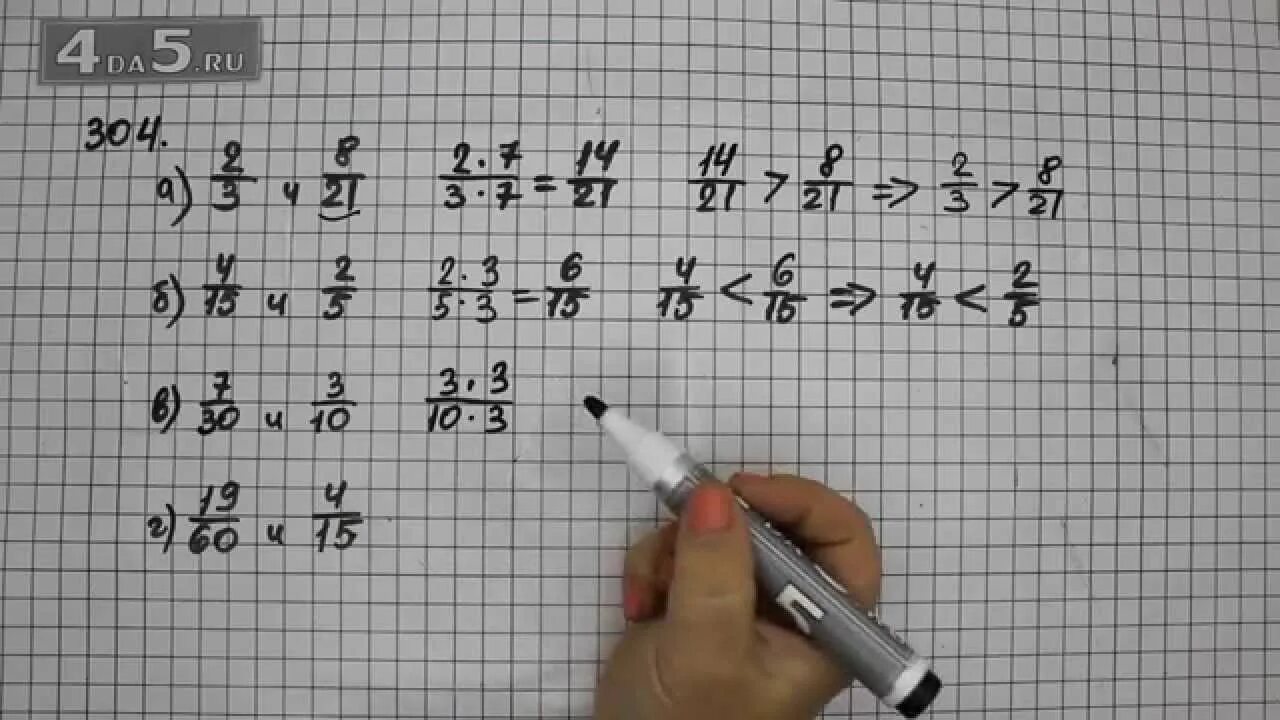 4DA5.RU
304.
а) 2/3 и 8/21 2·7/3·7 = 14/21 14/21 > 8/21 => 2/3 > 8/21
б) 4/15 и 2/5 2·3/5·3 = 6/15 4/15 < 6/15 => 4/15 < 2/5
в) 7/30 и 3/10 3·3/10·3
г) 19/60 и 4/15